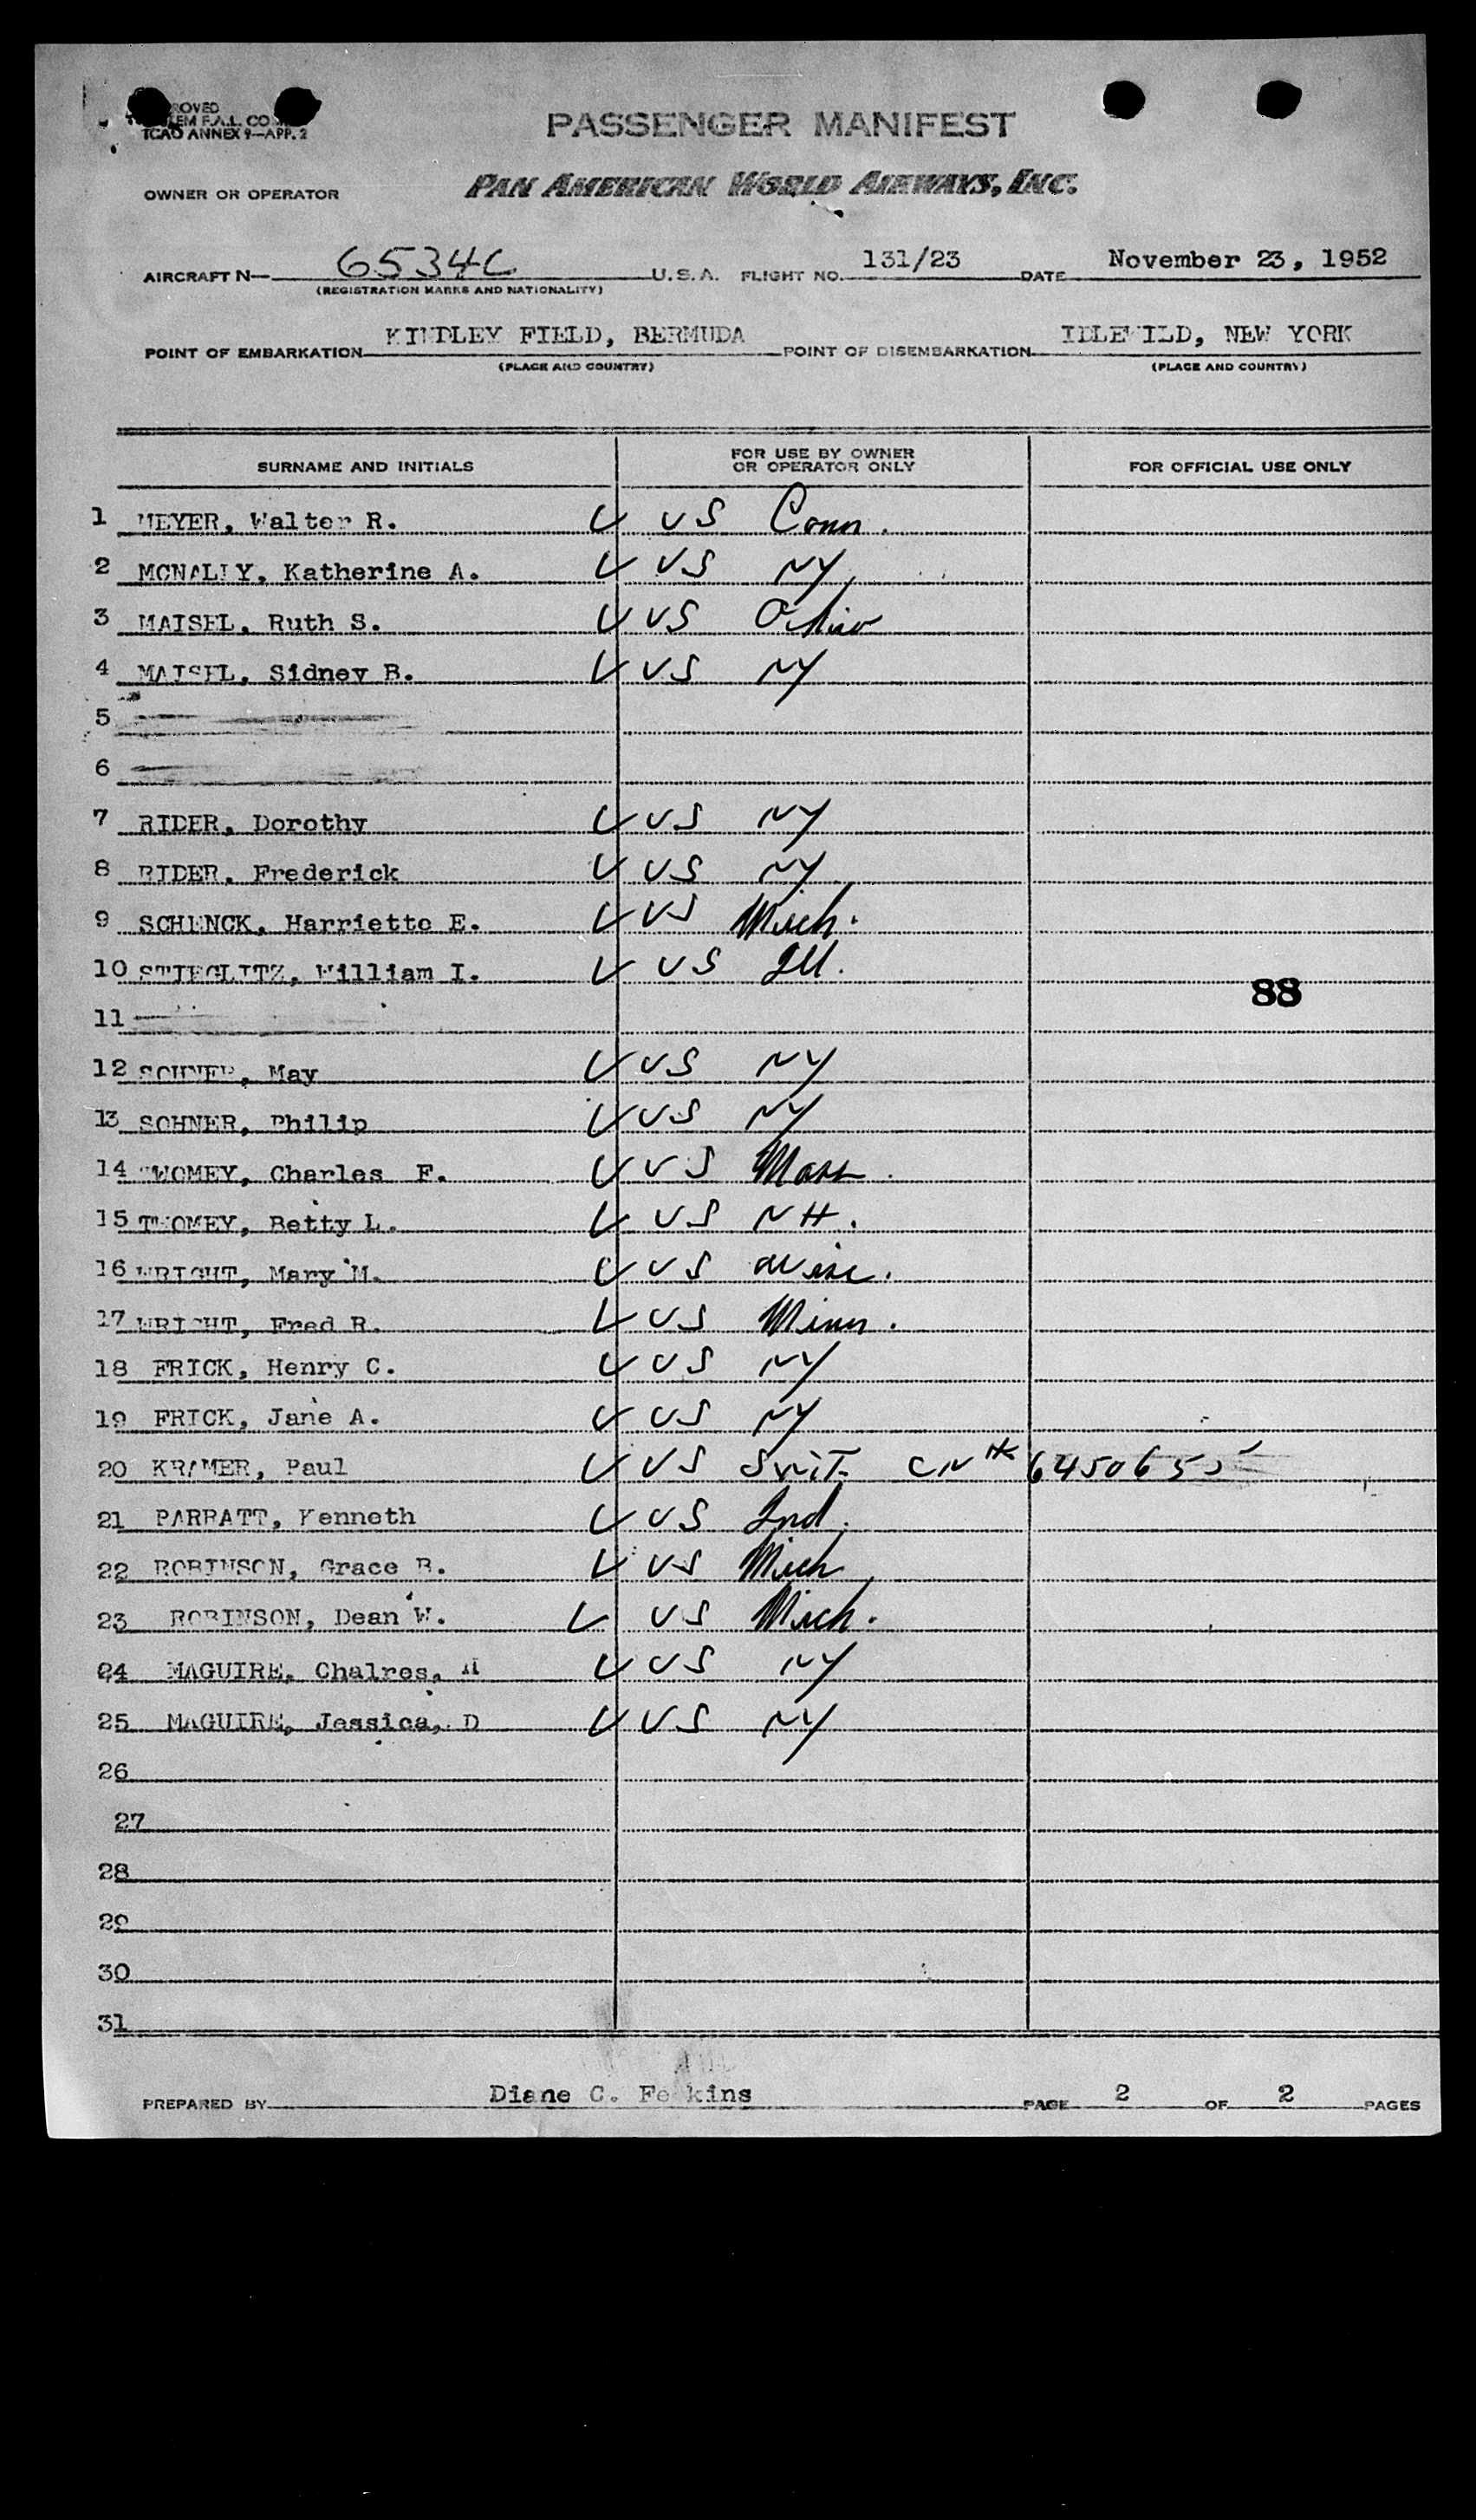 ROVED
EM F.A.L. CO
ICAO ANNEX 9—APP. 2
PASSENGER MANIFEST
OWNER OR OPERATOR PAN AMERICAN WORLD AIRWAYS, INC.
AIRCRAFT N— 6534C U.S.A. FLIGHT NO. 131/23 DATE November 23, 1952
(REGISTRATION MARKS AND NATIONALITY)
POINT OF EMBARKATION KINDLEY FIELD, BERMUDA POINT OF DISEMBARKATION IDLEWILD, NEW YORK
(PLACE AND COUNTRY) (PLACE AND COUNTRY)
SURNAME AND INITIALS FOR USE BY OWNER OR OPERATOR ONLY FOR OFFICIAL USE ONLY
1 MEYER, Walter R. US Conn.
2 MCNALLY, Katherine A. US NY
3 MAISEL, Ruth S. US Ohio
4 MAISEL, Sidney B. US NY
5
6
7 RIDER, Dorothy US NY
8 RIDER, Frederick US NY
9 SCHENCK, Harriette E. US Mich.
10 STIEGLITZ, William I. US Ill.
88
11
12 SOHNER, May US NY
13 SOHNER, Philip US NY
14 TWOMEY, Charles F. US Mass.
15 TWOMEY, Betty L. US NH.
16 WRIGHT, Mary M. US Wisc.
17 WRIGHT, Fred R. US Minn.
18 FRICK, Henry C. US NY
19 FRICK, Jane A. US NY
20 KRAMER, Paul US Swit. CN # 6450655
21 PARRATT, Kenneth US Ind.
22 ROBINSON, Grace B. US Mich
23 ROBINSON, Dean W. US Mich.
24 MAGUIRE, Chalres, US NY
25 MAGUIRE, Jessica, D US NY
26
27
28
29
30
31
PREPARED BY Diane C. PAGE 2 OF 2 PAGES